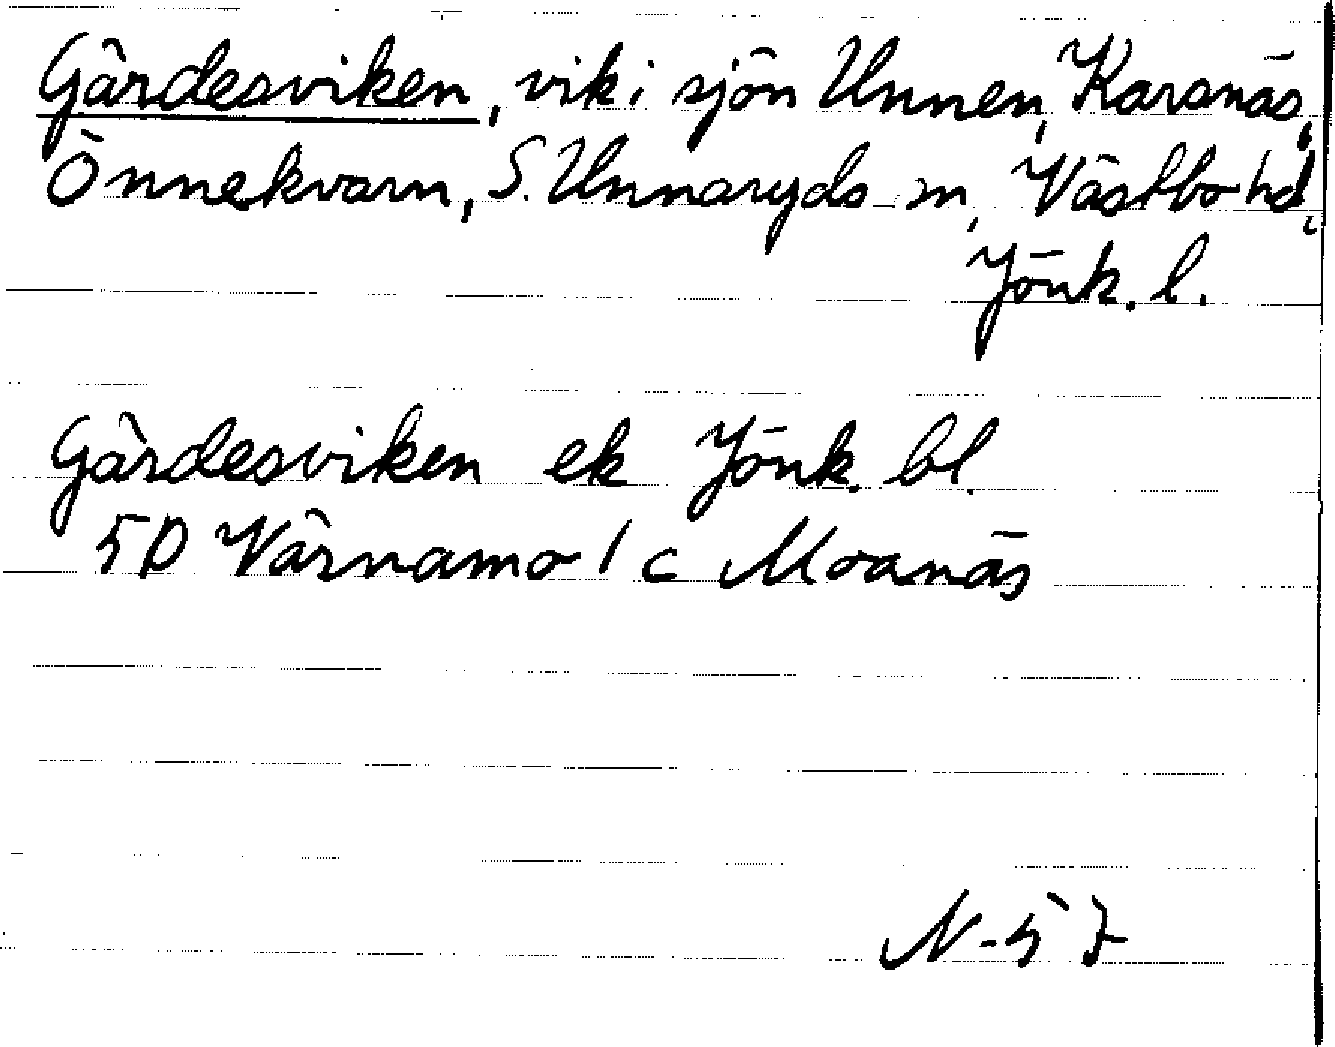 Gärdesviken, vik i sjön Unnen, Karsnäs,
Önnekvarn, S. Unnaryds sn, Västbo hd,
Jönk. l.
Gärdesviken ek Jönk. bl.
5D Värnamo 1 c Moanäs
N-57